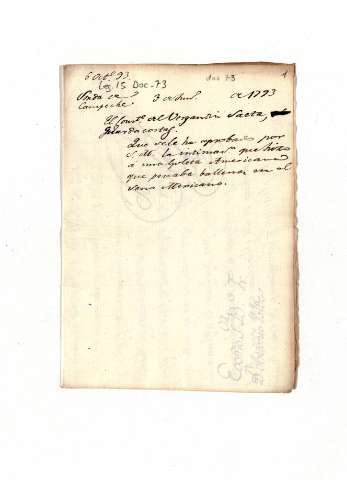 6 oct. 93.
Leg 15 Doc-73
doc 73
1
Sonda de
Campeche 3 de Jun. de 1793
El Comte. del Vergantin Saeta,
Guarda costas.
Que se le ha aprobado por
S. M. la intimas.n que hizo
á una Goleta Americana
que pescaba ballenas en el
Seno Mexicano.